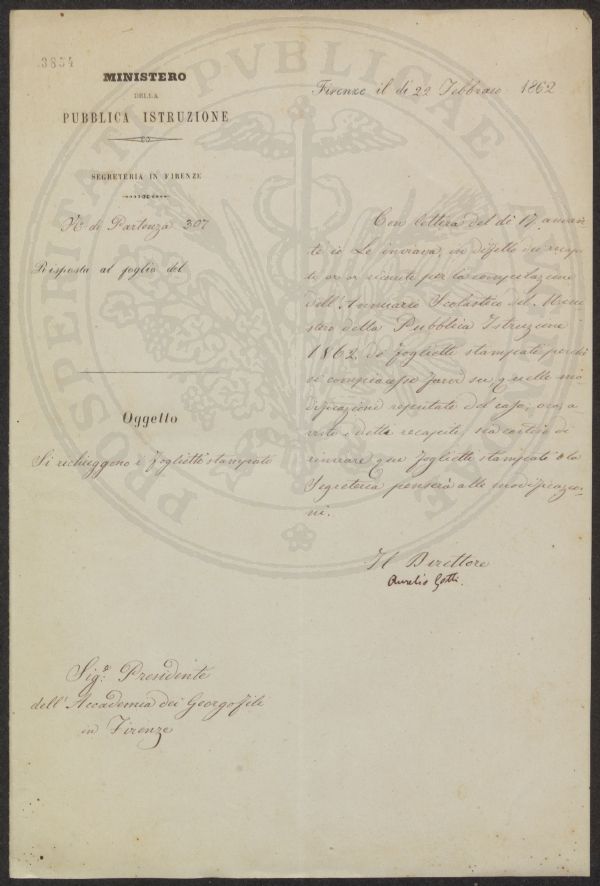 3854
MINISTERO
DELLA
PUBBLICA ISTRUZIONE
SEGRETERIA IN FIRENZE
N.º di Partenza 307
Risposta al foglio del
Oggetto
Si richieggono i foglietti stampati
Firenze il dì 22 Febbraio 1862
Con lettera del dì 17 andan-
te io Le inviava, in difetto dei recapi-
ti or or ricevuti per la compilazione
dell'Annuario Scolastico del Mini-
stero della Pubblica Istruzione
1862, i foglietti stampati perchè
si compiacesse farvi su quelle mo
dificazioni reputate del caso; ora, a
vuti i detti recapiti, sia cortese di
rinviare que' foglietti stampati e la
Segreteria penserà alle modificazio-
ni.
Il Direttore
Aurelio Gotti.
Sigr. Presidente
dell'Accademia dei Georgofili
in Firenze
PROSPERITATI PVBLICAE